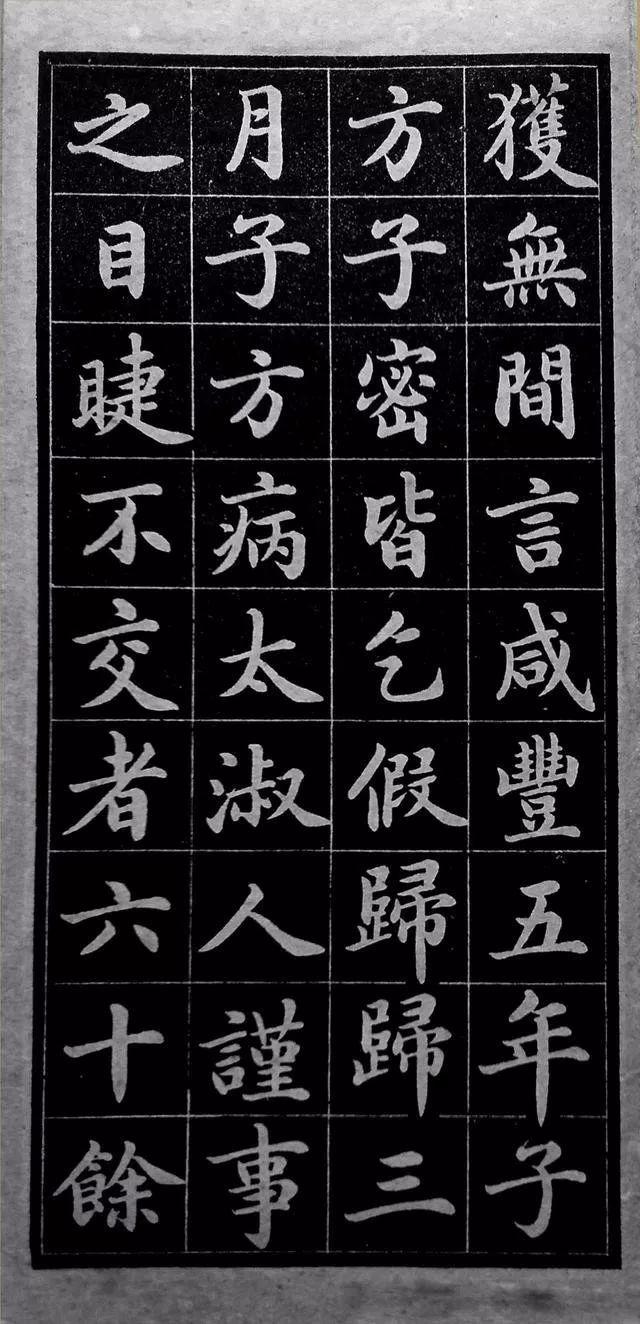 獲無間言咸豐五年子
方子密皆乞假歸歸三
月子方病太淑人謹事
之目睫不交者六十餘